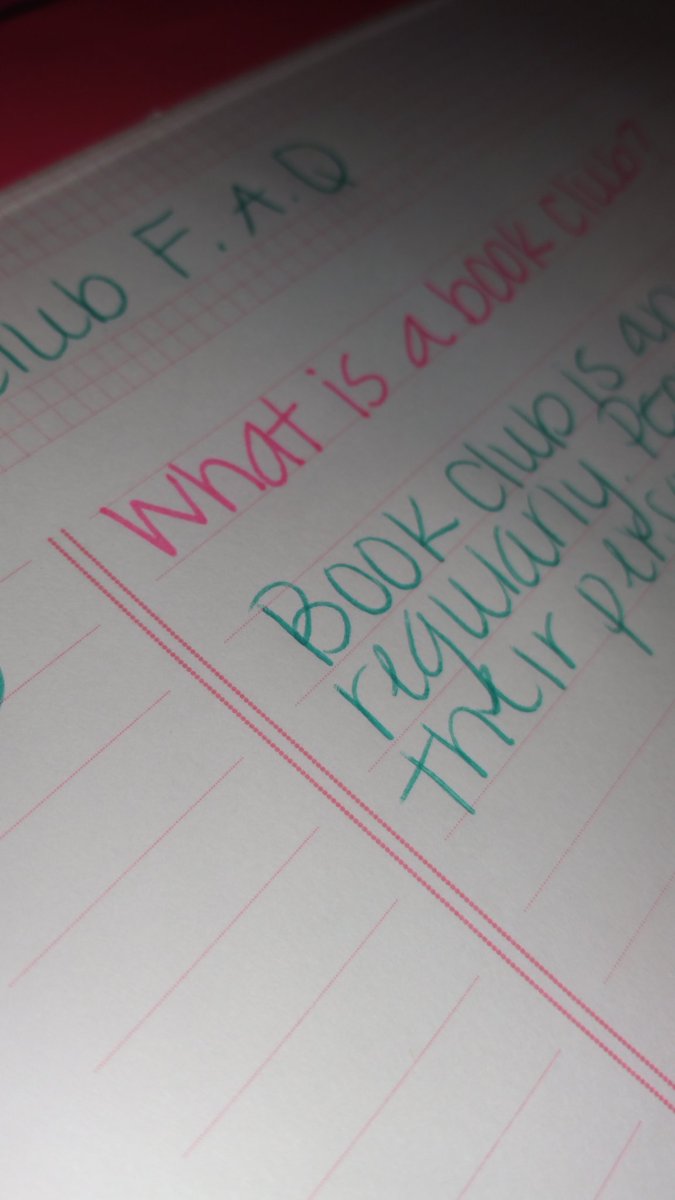 club F.A.Q
What is a book club?
Book club is
regularly.
their